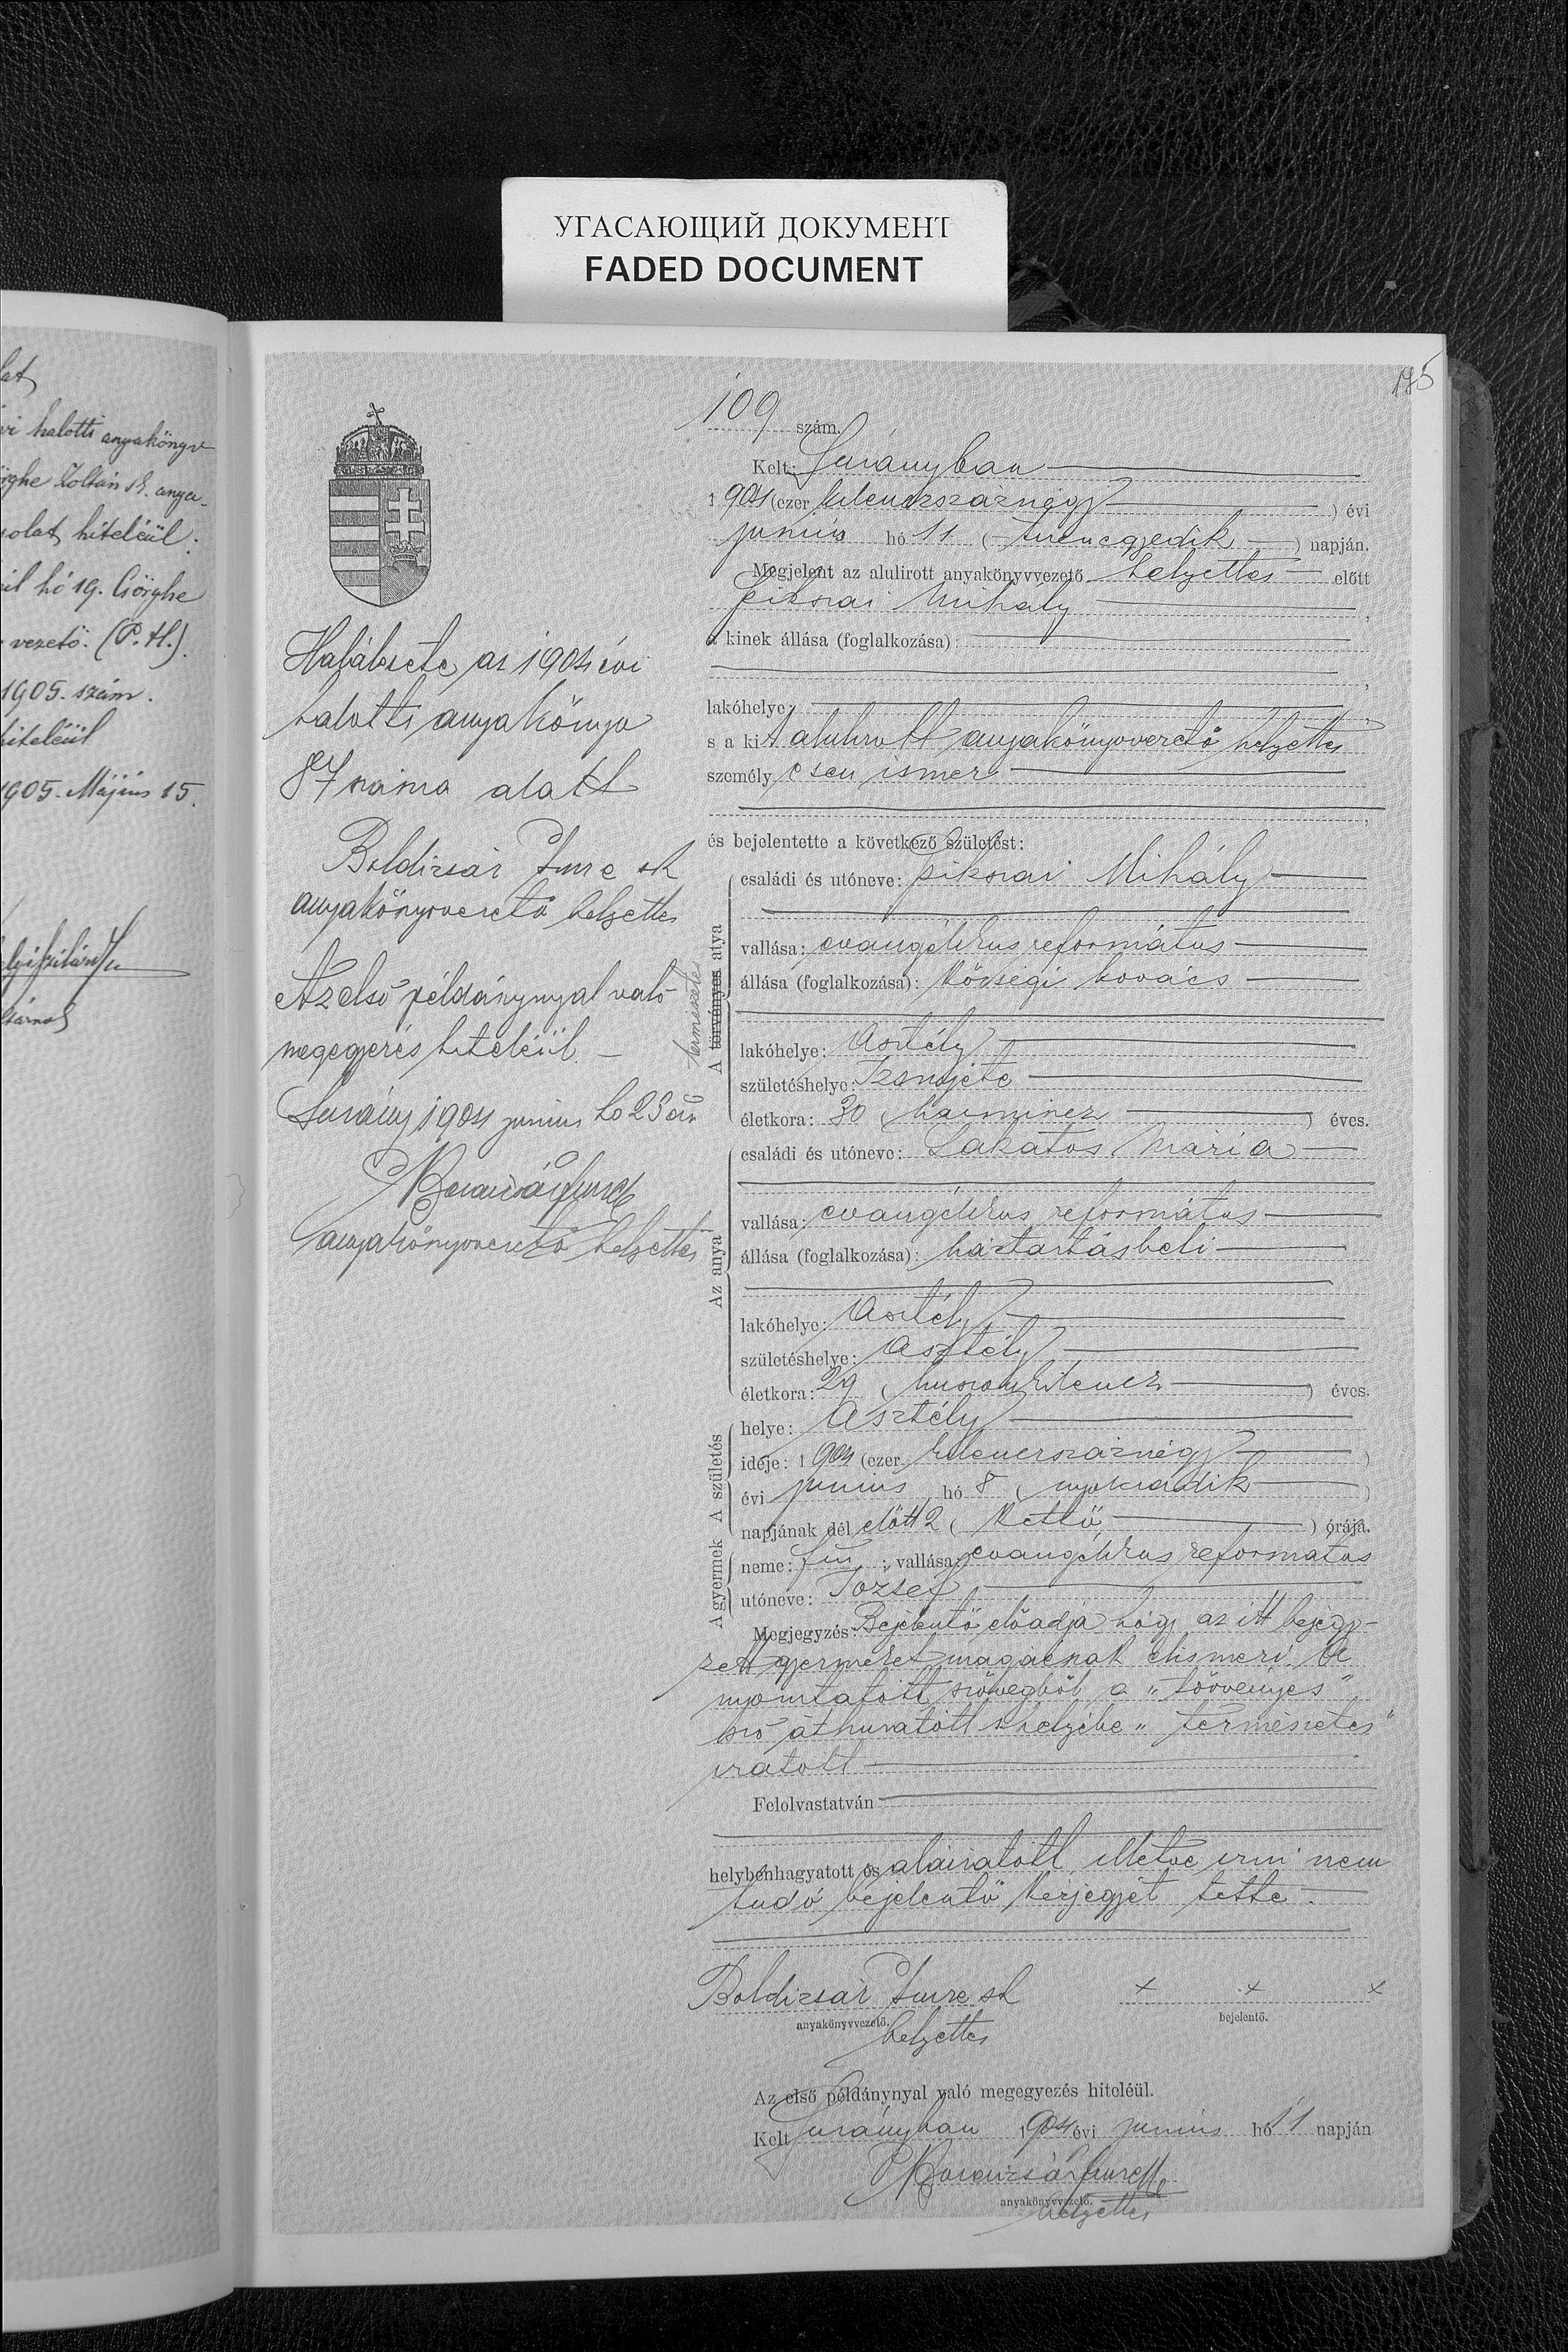 УГАСАЮЩИЙ ДОКУМЕНТ
FADED DOCUMENT
lat
vi halotti anyakönyv
Zoltán sk. anya-
hiteléül:
hó 19. György
vezető. (P. H.).
1905. szám.
hiteléül
1905. Május 15.
175
109 szám.
Kelt: Surányban
1904 (ezer kilenczszáznégy) évi
junius hó 11 (tizenegyedik) napján.
Megjelent az alulirott anyakönyvvezető helyettes előtt
Mihály,
a kinek állása (foglalkozása):
lakóhelye:
s a kit alulirott anyakönyvvezető helyettes
személyesen ismer
és bejelentette a következő születést:
A törvényes atya
természetes
családi és utóneve: Mihály
vallása: evangélikus református
állása (foglalkozása): községi kovács
lakóhelye: Asztély
születéshelye:
életkora: 30 (harmincz) éves.
Az anya
családi és utóneve: Lakatos Mária
vallása: evangélikus református
állása (foglalkozása): háztartásbeli
lakóhelye: Asztély
születéshelye: Asztély
életkora: 29 (huszonkilencz) éves.
A születés
helye: Asztély
ideje: 1904 (ezer kilenczszáznégy)
évi junius hó 8 (nyolczadik)
napjának dél előtt 2 (kettő) órája.
A gyermek
neme: fiu; vallása: evangélikus református
utóneve: József
Megjegyzés: Bejelentő előadja hogy az itt bejegy-
zett gyermeket magáénak elismeri. A
nyomtatott szövegből a "törvényes"
szó áthuzatott s helyébe "természetes"
iratott
Felolvastatván
helybenhagyatott és aláiratott, illetve irni nem
tudó bejelentő kézjegyét tette.
Boldizsár Imre sk
anyakönyvvezető.
helyettes
x x x
bejelentő.
Az első példánynyal való megegyezés hiteléül.
Kelt Surányban 1904 évi junius hó 11 napján
Boldizsár Imre
anyakönyvvezető.
helyettes
Halálesete az 1904 évi
halotti anyakönyv
87 száma alatt
Boldizsár Imre sk
anyakönyvvezető helyettes
Az első példánynyal való
megegyezés hiteléül.
Surány 1904 junius hó 23 án
Boldizsár Imre
anyakönyvvezető helyettes